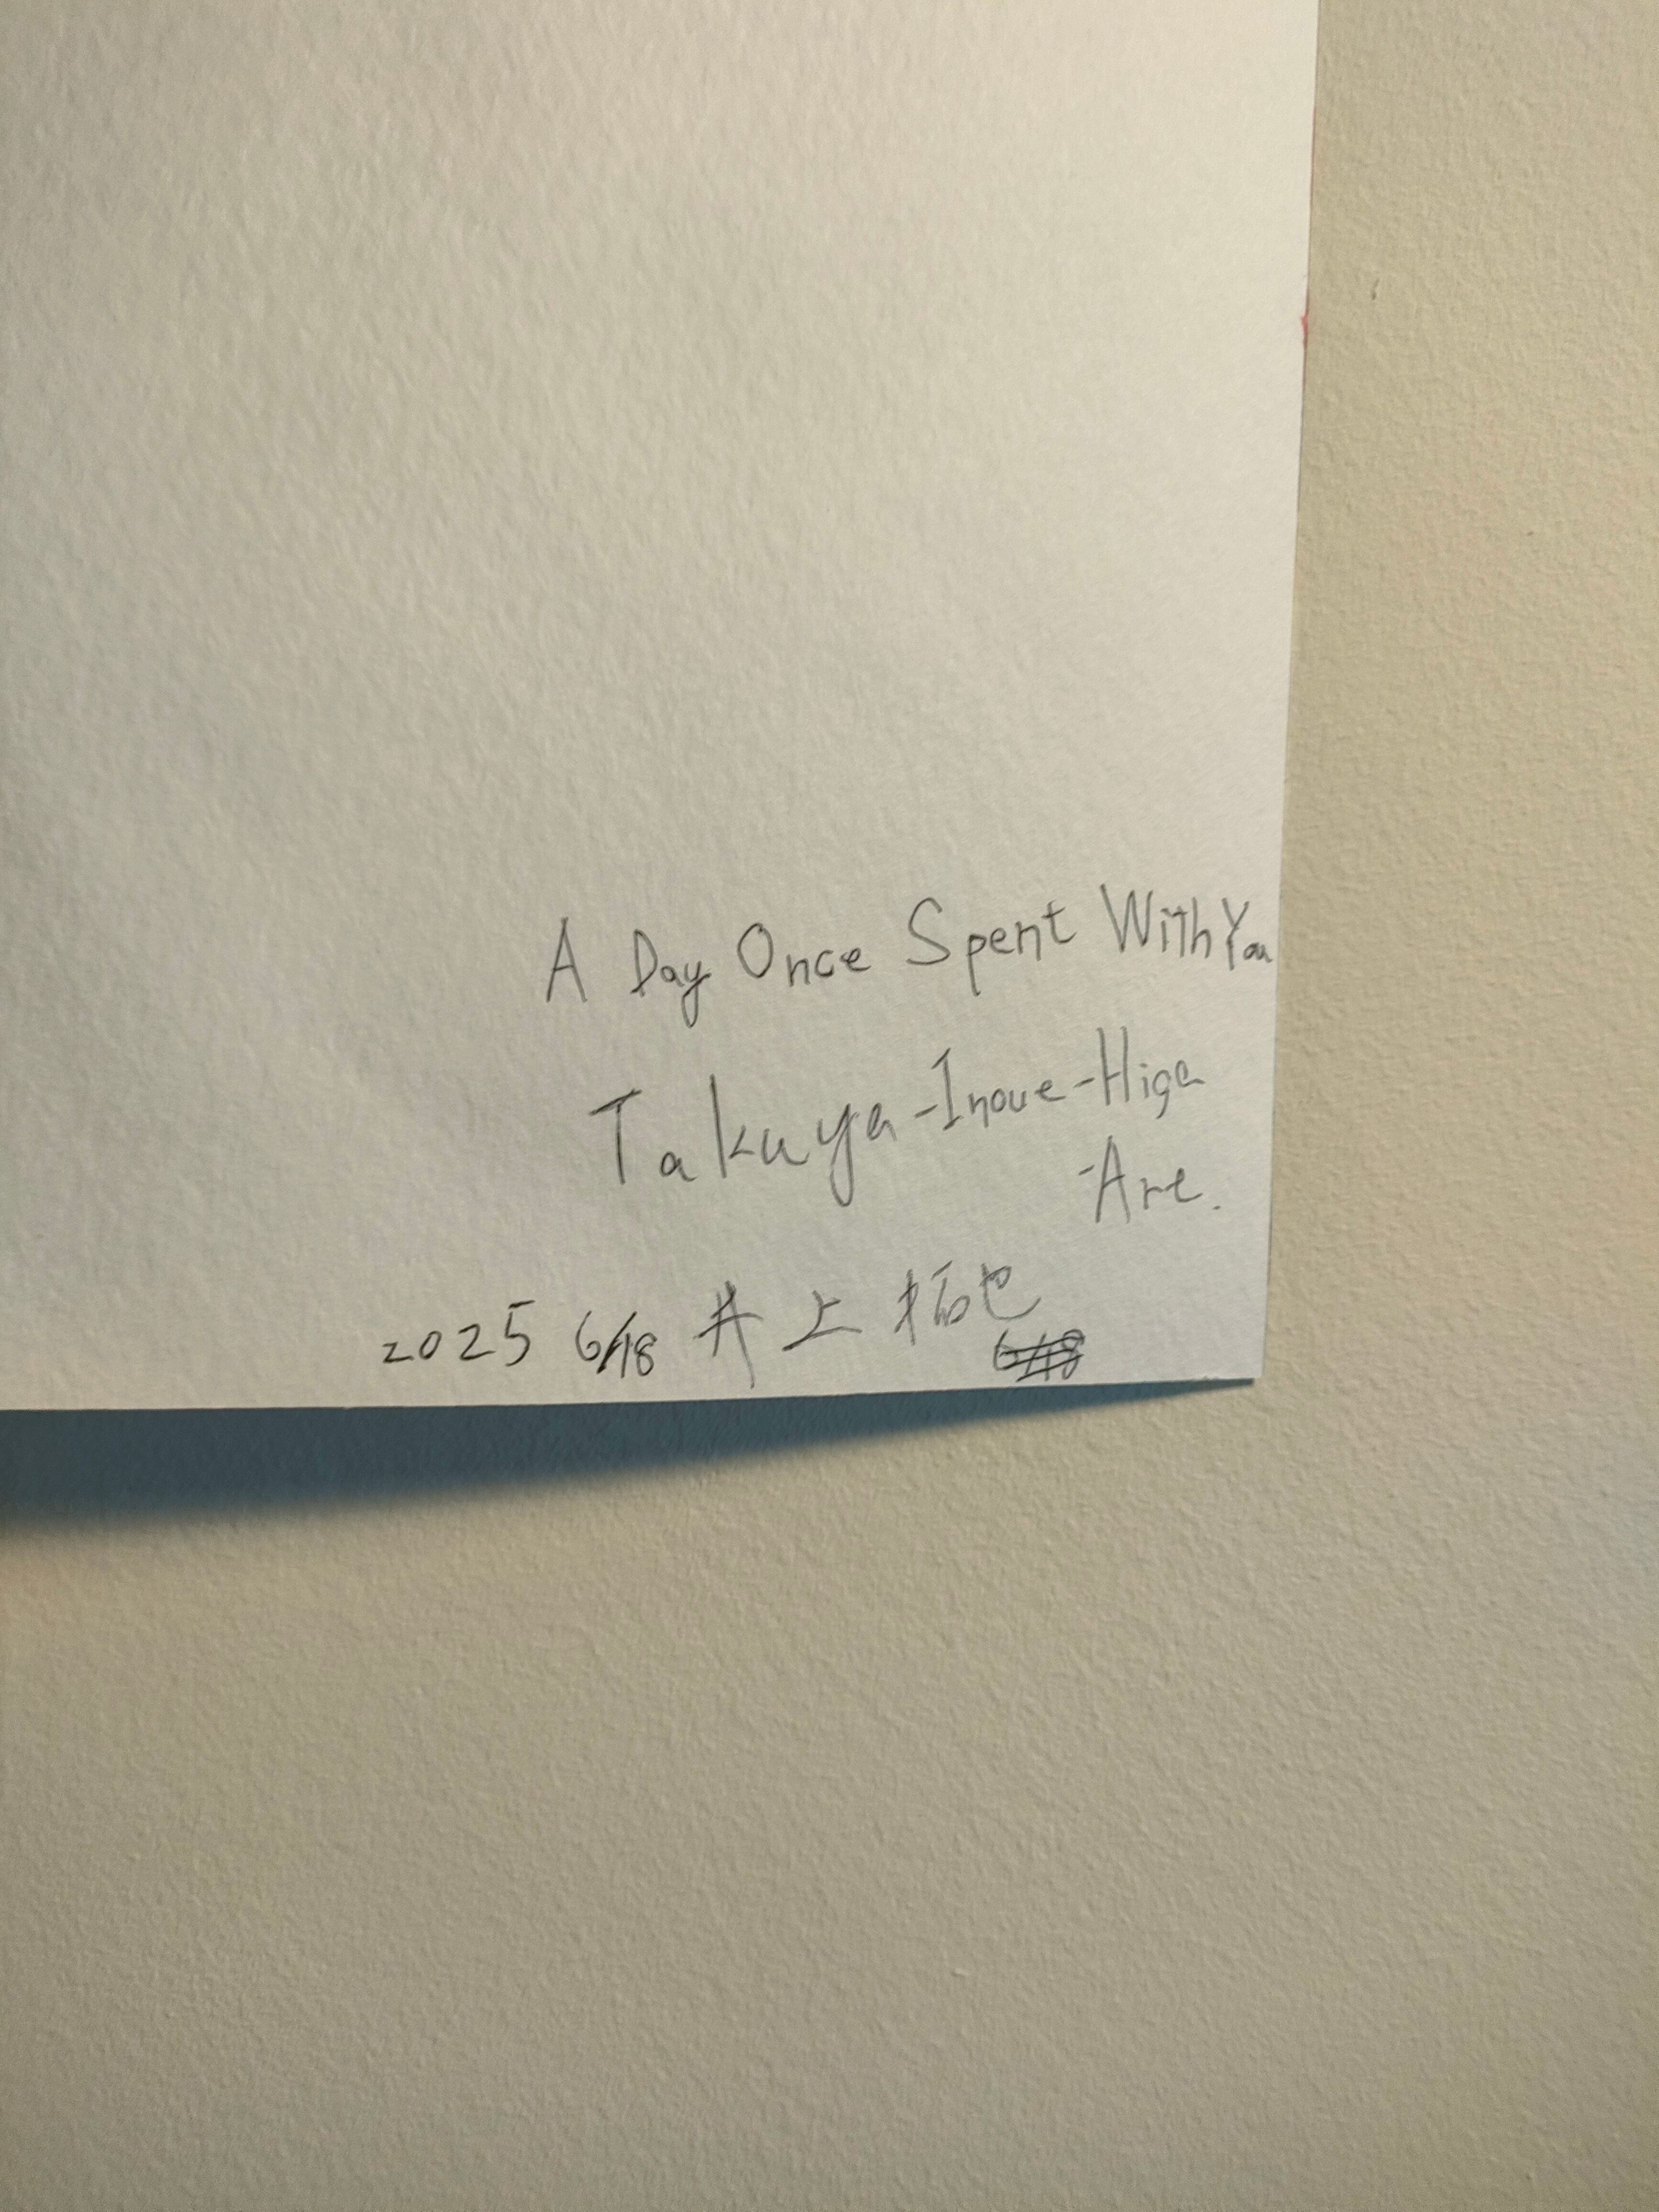 A Day Once Spent With You
Takuya-Inoue-Higa
-Are.
2025 6/18 井上拓也
6/18